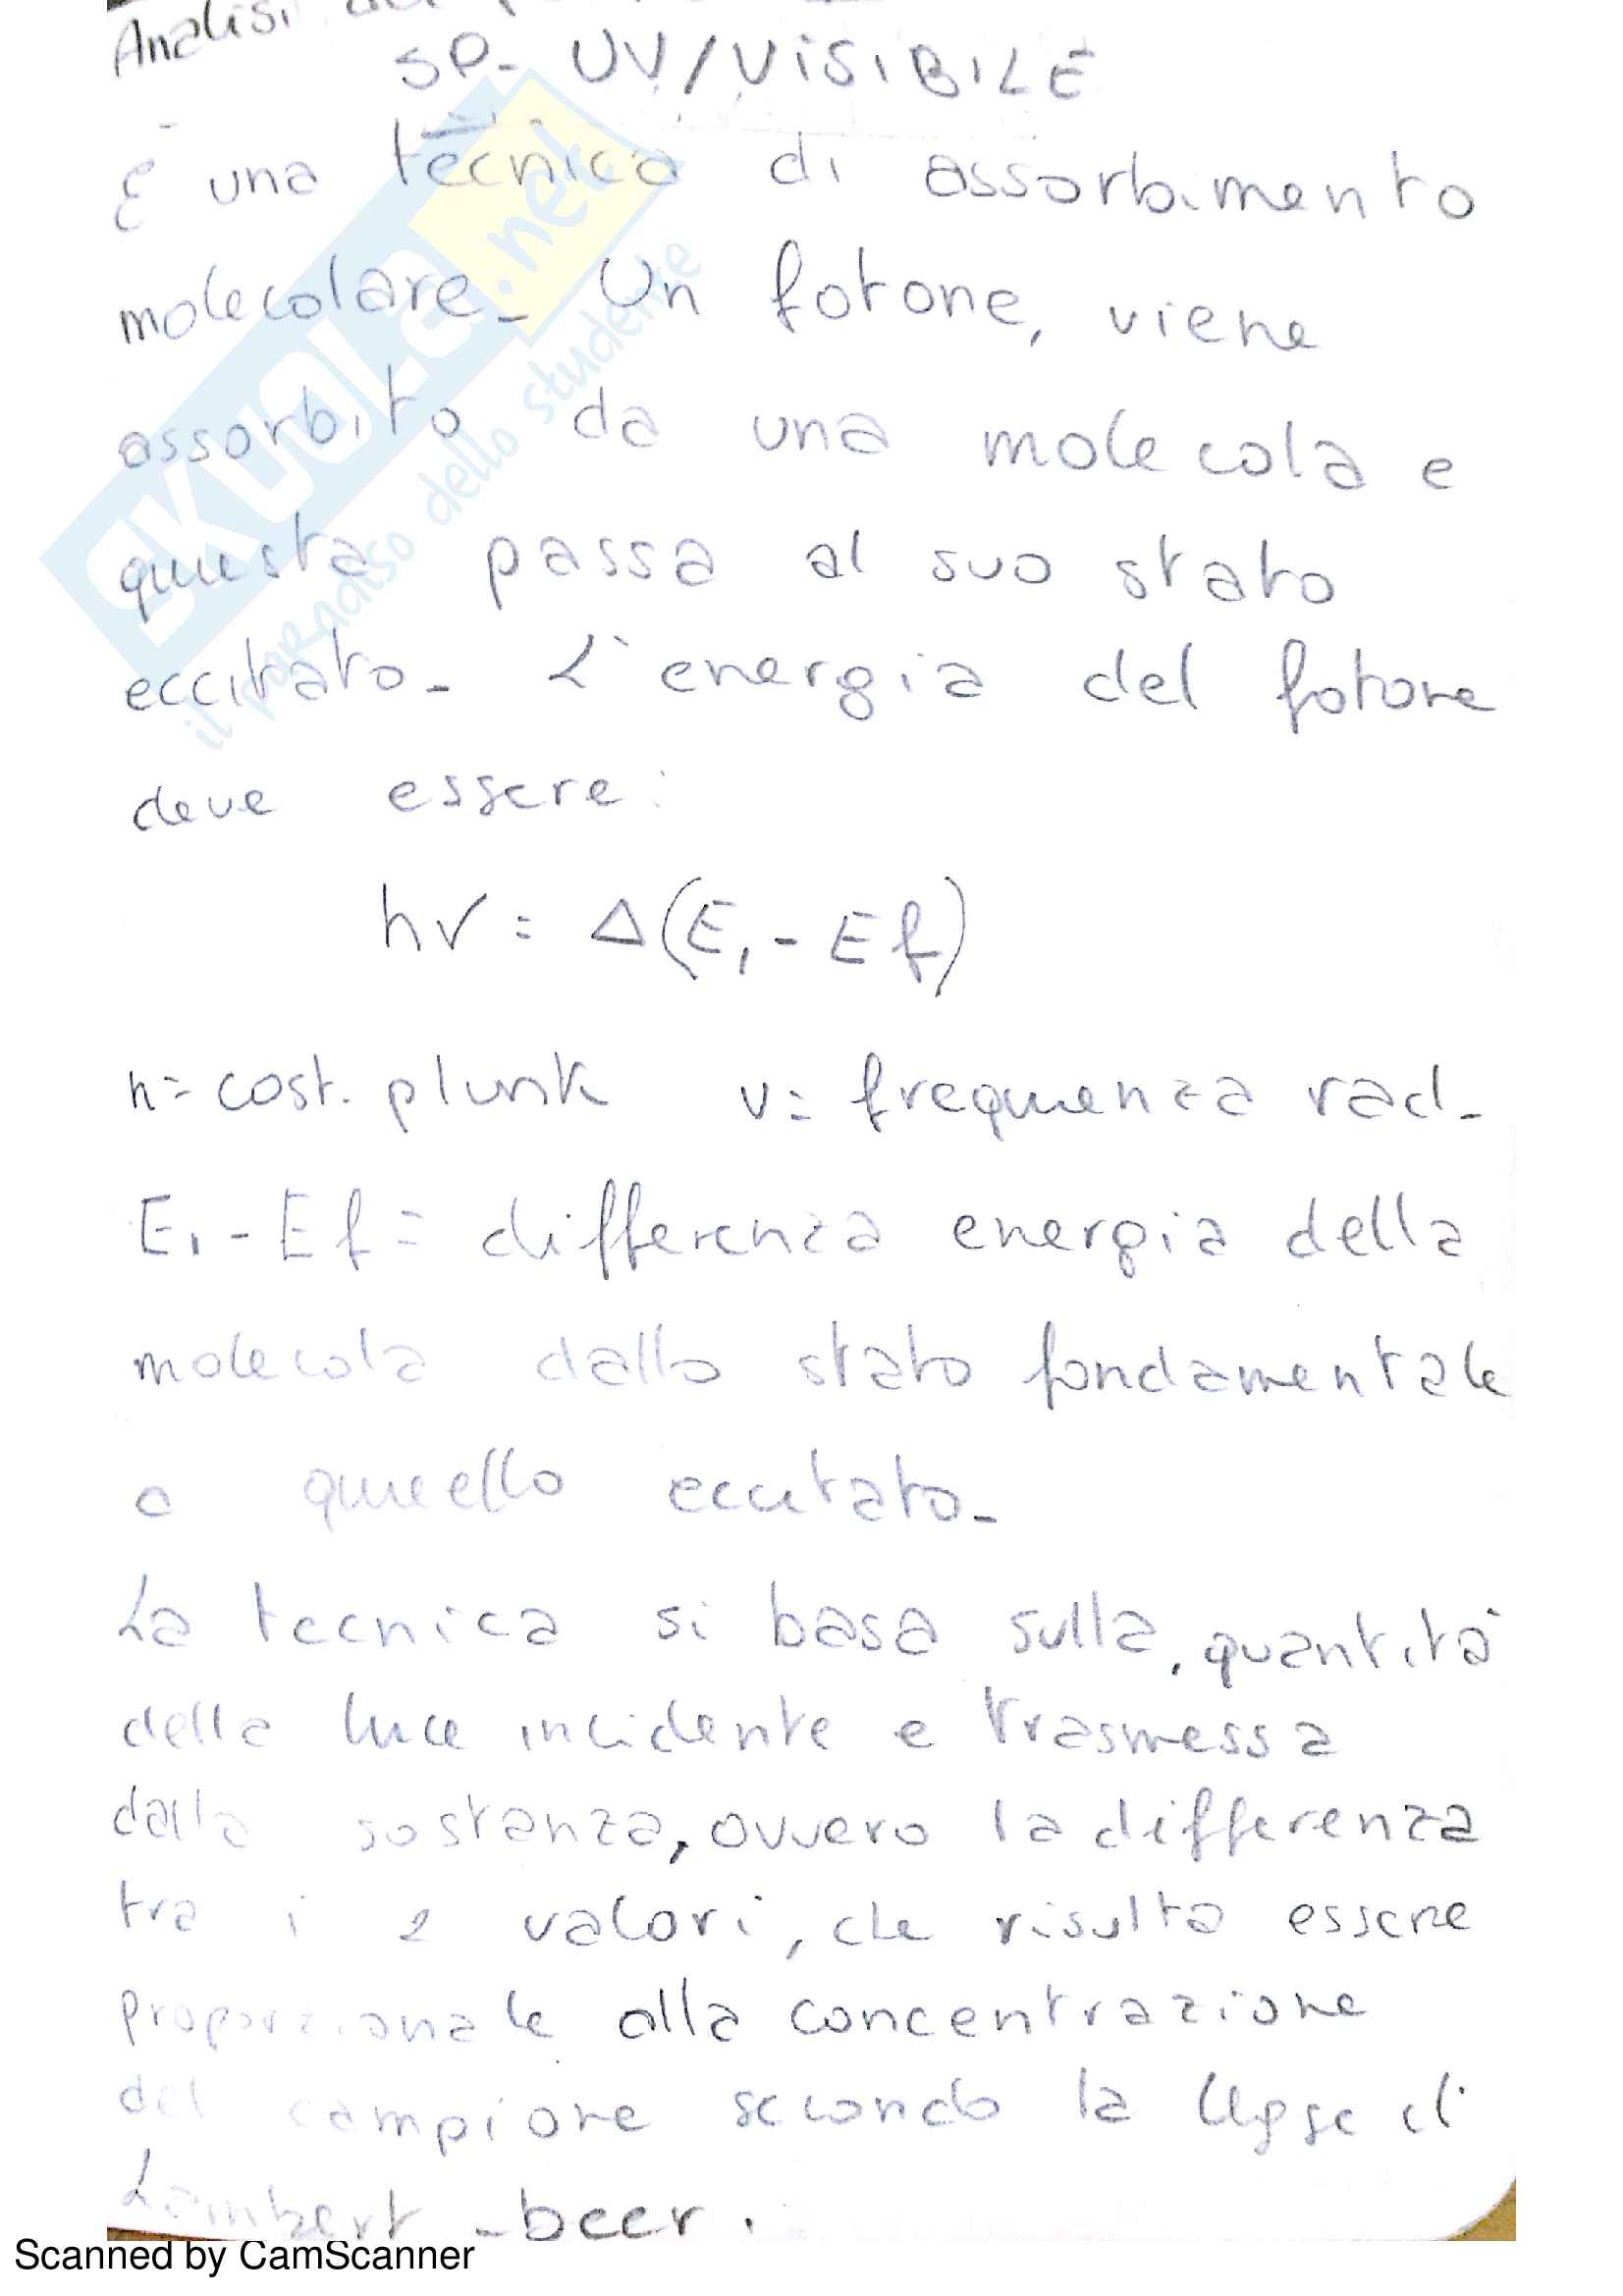 Analisi
SP- UV/VISIBILE
È una tecnica di assorbimento
molecolare- Un fotone, viene
assorbito da una molecola e
questa passa al suo stato
eccitato- L'energia del fotone
deve essere:
hν = Δ(E1 - Ef)
h= cost. plunk ν= frequenza rad-
E1 - Ef = differenza energia della
molecola dallo stato fondamentale
a quello eccitato-
La tecnica si basa sulla, quantità
della luce incidente e trasmessa
dalla sostanza, ovvero la differenza
tra i 2 valori, che risulta essere
proporzionale alla concentrazione
del campione secondo la legge di
Lambert-beer.
SKUOLA.net
il paradiso dello studente
Scanned by CamScanner